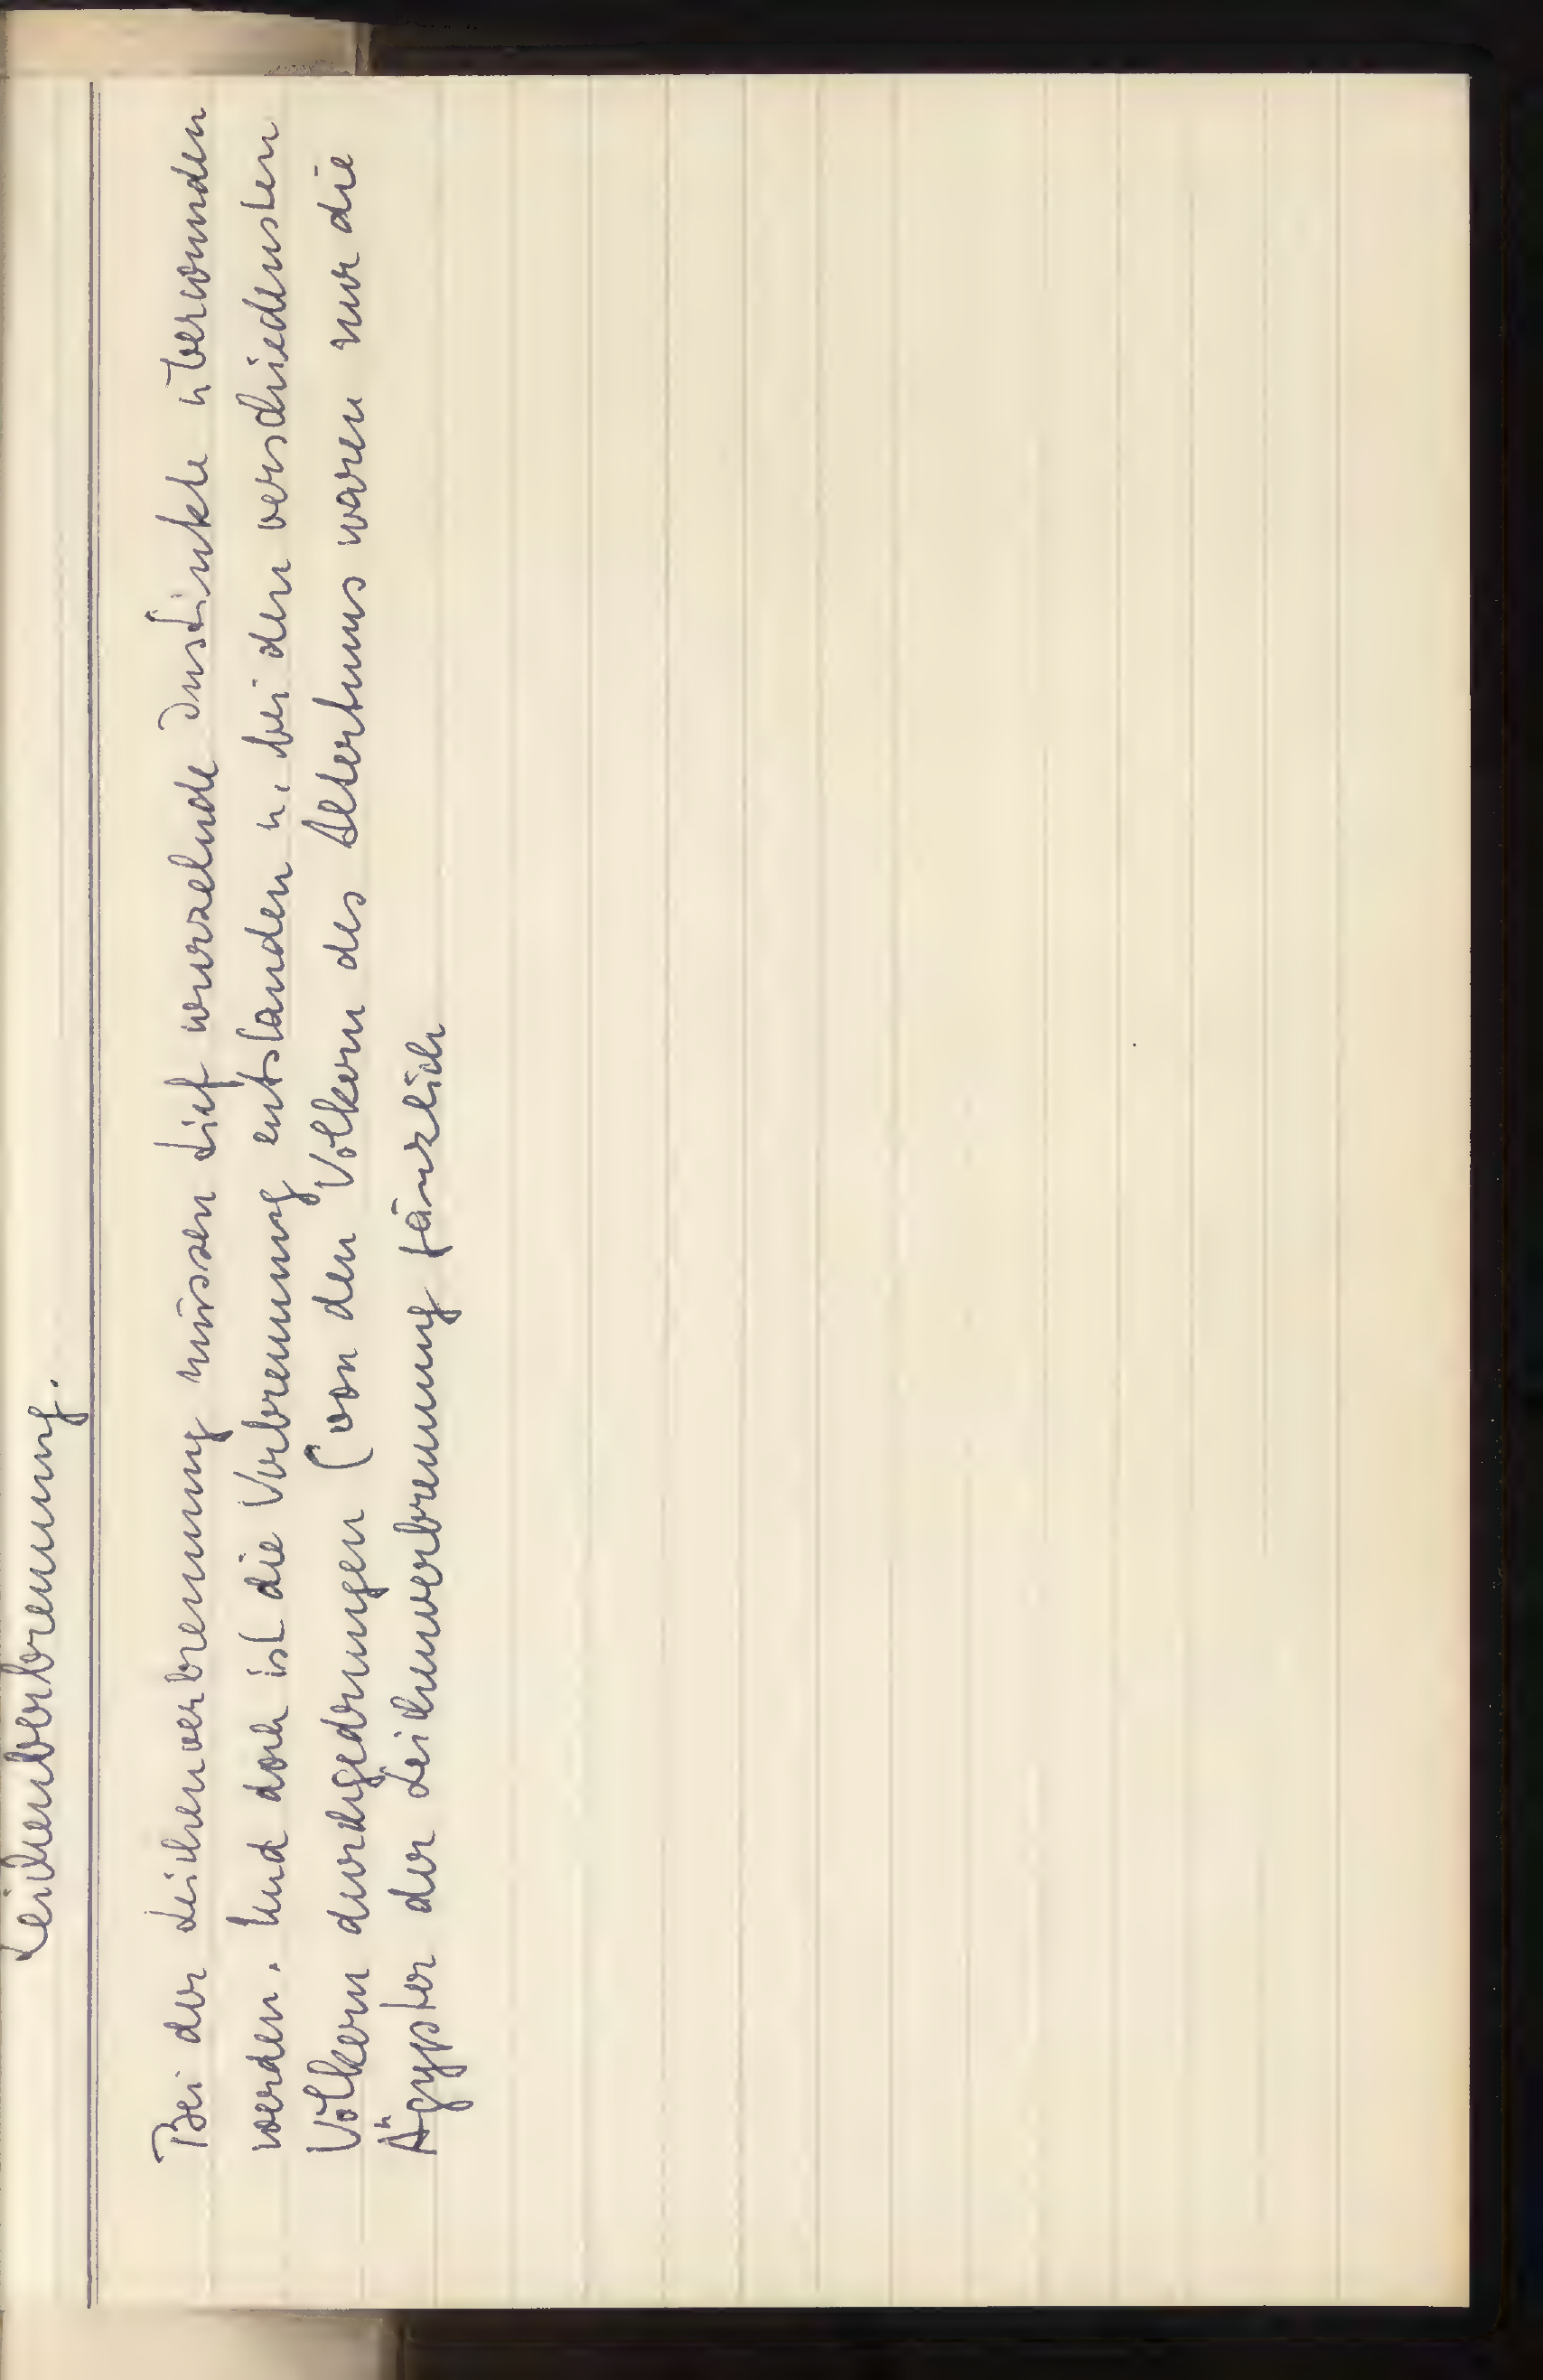 Leichenverbrennung.
Bei der Leichenverbrennung müssen tief wurzelnde Instinkte überwunden
werden. Und doch ist die Verbrennung entstanden u. bei den verschiedensten
Völkern durchgedrungen (von den Völkern des Altertums waren nur die
Ägypter der Leichenverbrennung gänzlich